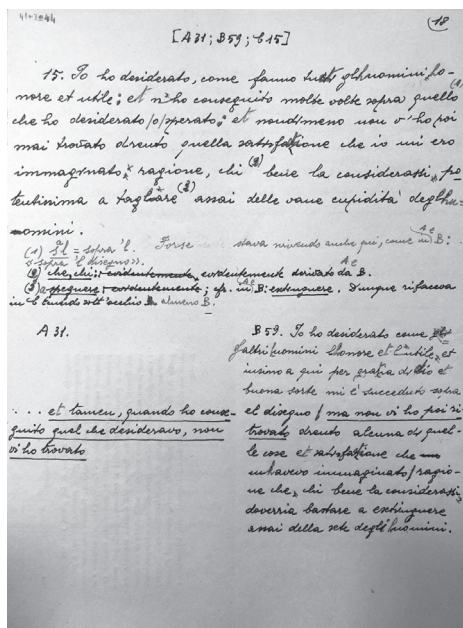 41+3=44
18
[A 31; B 59; C 15]
15. Io ho desiderato, come fanno tutti gli huomini, ho-
nore et utile; et n'ho conseguito molte volte sopra quello
che ho desiderato /o/ sperato; et nondimeno non v'ho poi
mai trovato drento quella satisfatione che io mi ero
immaginato; ragione, chi (2) bene la considerassi, po-
tentissima a tagliare (3) assai delle vane cupidità degli hu-
omini.
(1) = sopra 'l. Forse stava scrivendo anche qui, come in B:
«sopra 'l disegno».
(2) che, chi; evidentemente derivato da B.
(3) a ; cfr. in B: extinguere. Dunque rifaceva
in C sott'occhio almeno B.
A 31.
... et tamen, quando ho conse-
guito quel che desideravo, non
vi ho trovato
B 59. Io ho desiderato come gl'
altri huomini l'honore et l'utile, et
insino a qui per gratia di Dio et
buona sorte mi è succeduto sopra
el disegno / ma non vi ho poi ri
trovato drento alcuna di quel-
le cose et satisfatione che
m'havevo immaginato / ragio-
ne che, chi bene la considerassi,
doverria bastare a extinguere
assai della sete degl'huomini.